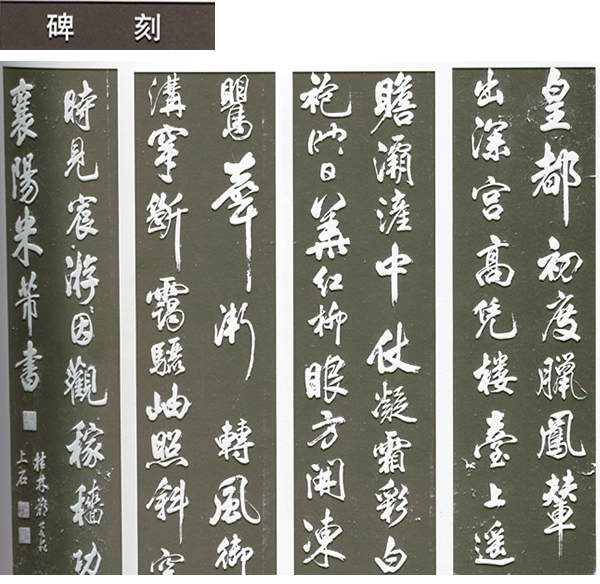 碑 刻
皇都初度臘鳳輦
出深宫高凭楼臺上遥
瞻灞滻中仗凝霜彩白
袍映日華紅柳眼方開凍
鸎華漸轉風御
溝穿斷靄驪岫照斜空
時見宸游因觀稼穡功
襄陽米芾書
桂林
上石